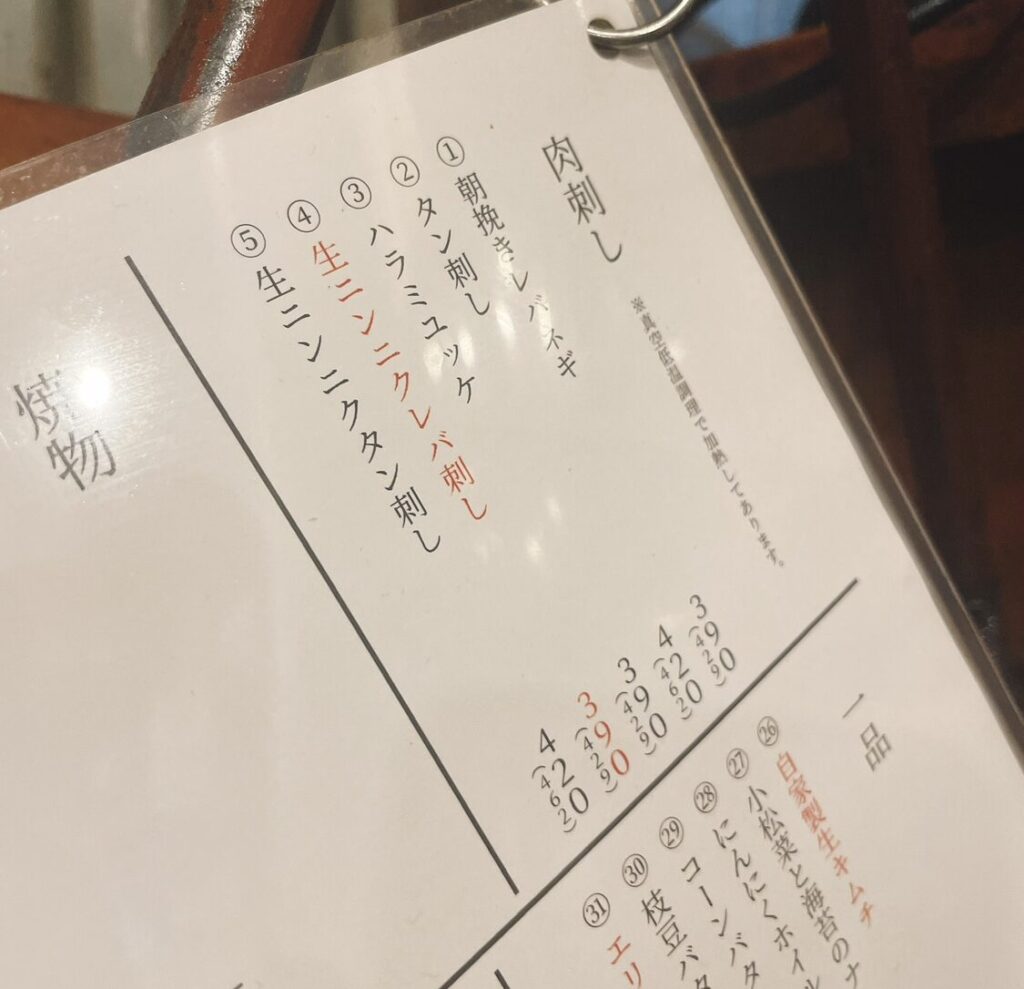 肉刺し
※真空低温調理で加熱してあります。
①朝挽きレバネギ
390
(429)
②タン刺し
420
(462)
③ハラミユッケ
390
(429)
④生ニンニクレバ刺し
390
(429)
⑤生ニンニクタン刺し
420
(462)
一品
㉖自家製生キムチ
㉗小松菜と海苔のナ
㉘にんにくホイル
㉙コーンバタ
㉚枝豆バタ
㉛エリ
焼物